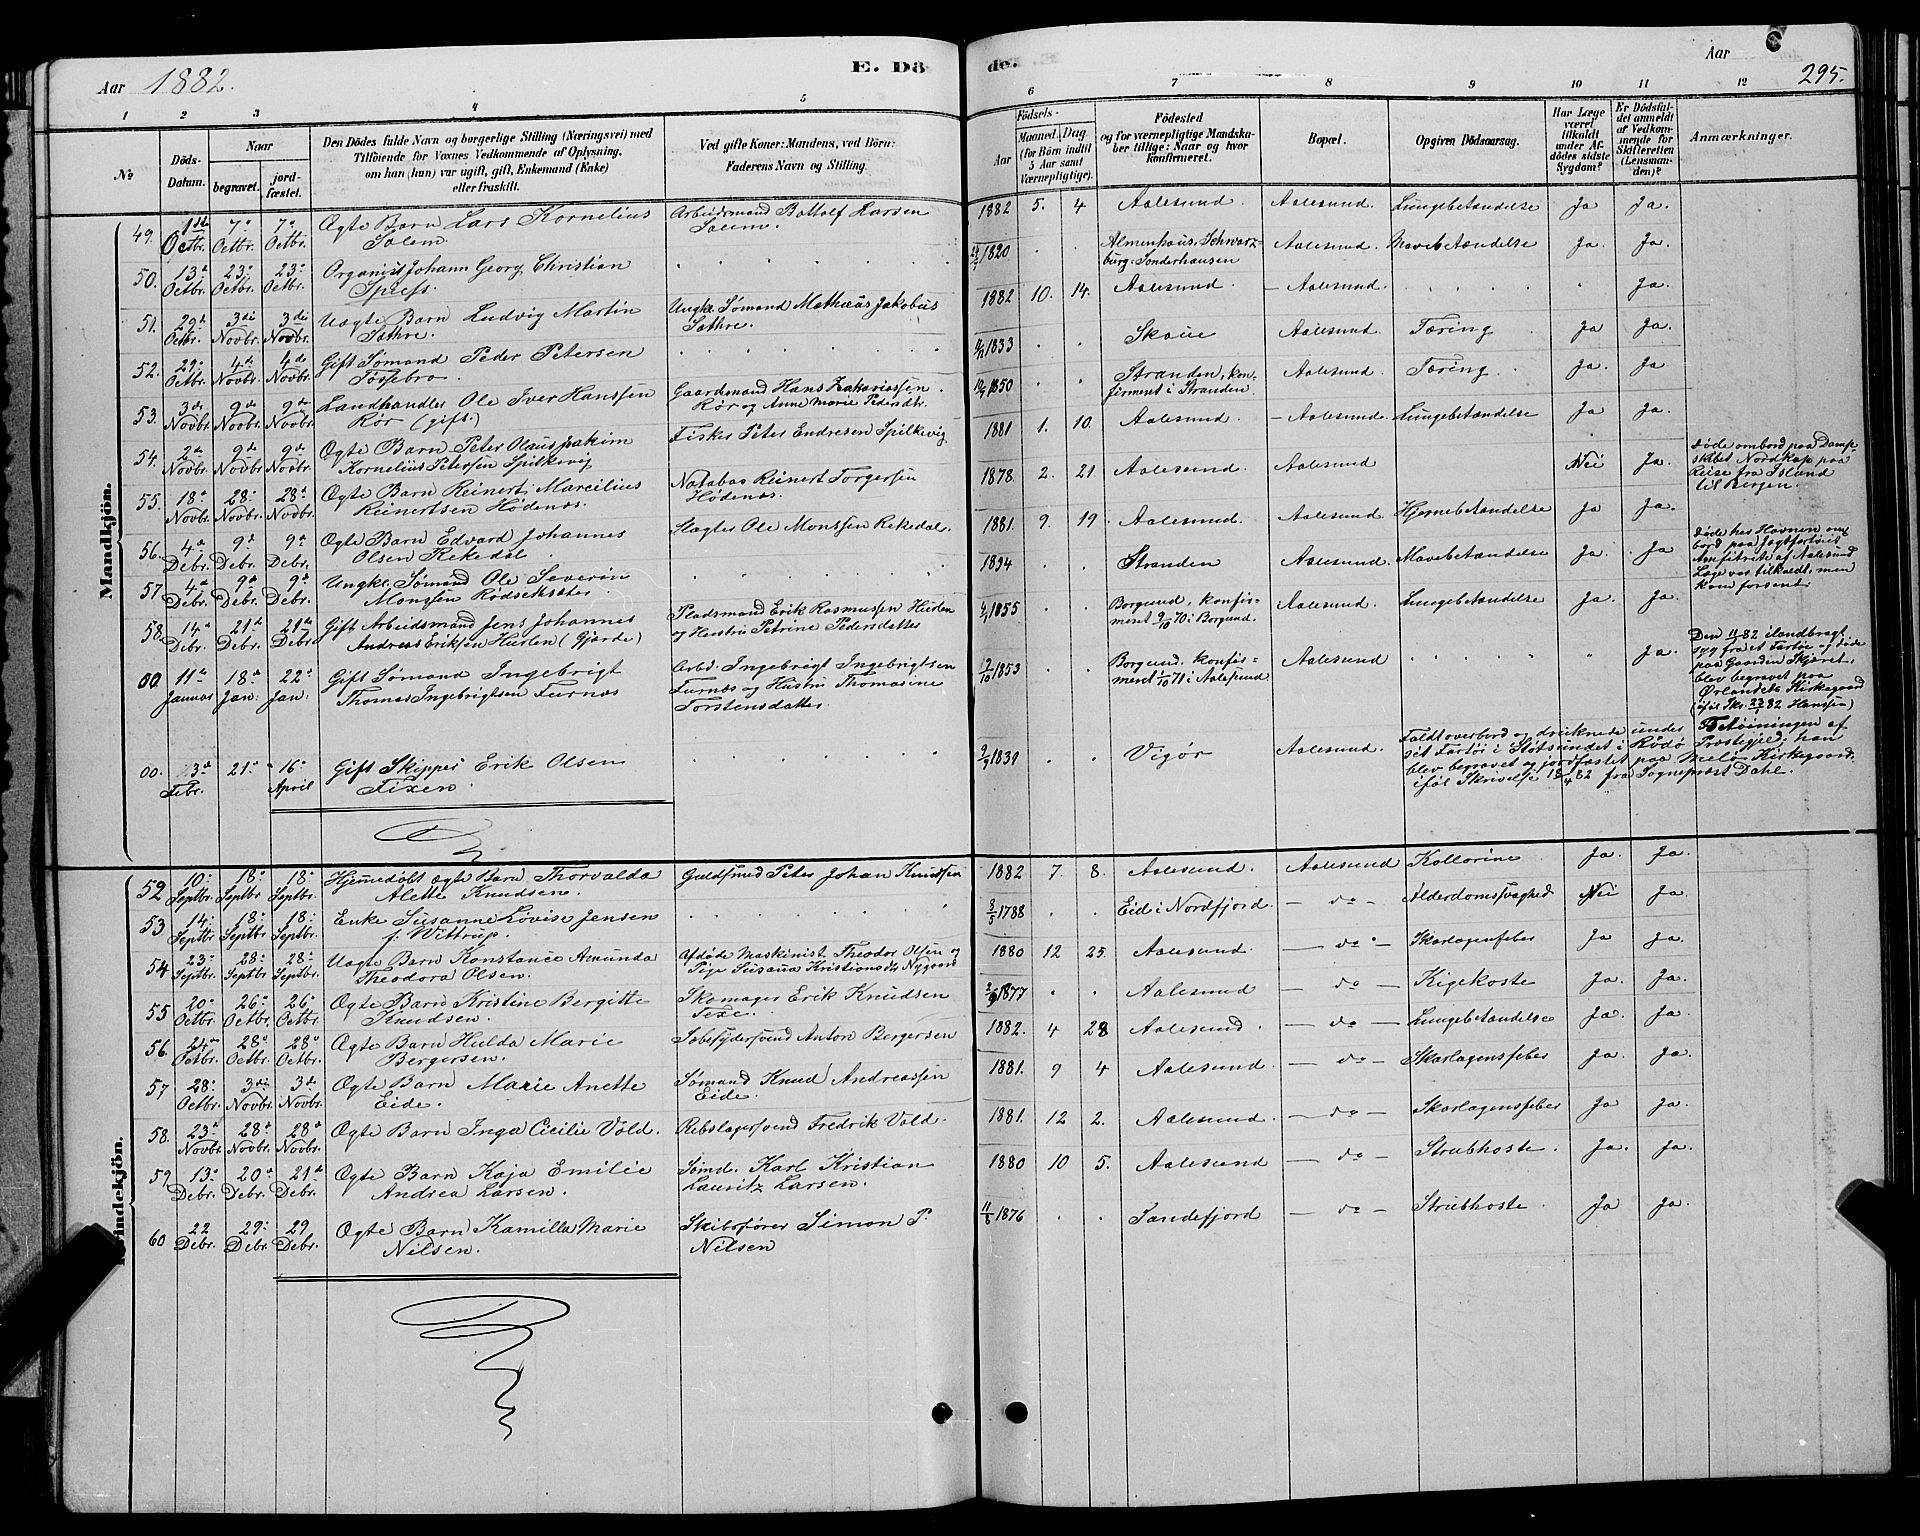 Aar 1882.
E. Dö
de.
Aar
295.
1 2 3 4 5 6 7 8 9 10 11 12
No
Döds-Datum.
Naar
begravet.
jord-fæstet.
Den Dödes fulde Navn og borgerlige Stilling (Næringsvei) med
Tilföiende for Voxnes Vedkommende af Oplysning,
om han (hun) var ugift, gift, Enkemand (Enke)
eller fraskilt.
Ved gifte Koner: Mandens, ved Börn:
Faderens Navn og Stilling.
Födsels-
Aar
Maaned. Dag.
(for Börn indtil
5 Aar samt
Værnepligtige).
Födested
og for værnepligtige Mandska-
ber tillige: Naar og hvor
konfirmeret.
Bopæl.
Opgiven Dödsaarsag.
Har Læge
været
tilkaldt
under Af-
dödes sidste
Sygdom?
Er Dödsfal-
det anmeldt
af Vedkom-
mende for
Skifteretten
(Lensman-
den)?
Anmærkninger.
Mandkjön.
49. 1ste Octbr. 7de Octbr. 7de Octbr. Ægte Barn Lars Kornelius Solem. Arbeidsmand Bottolf Larsen Solem. 1882 5. 4 Aalesund. Aalesund. Lungebetændelse Ja Ja.
50. 13de Octbr. 23de Octbr. 23de Octbr. Organist Johann Georg Christian 1820 Almenhaus, Schwarz-burg-Sonderhausen Aalesund Mavebetændelse Ja. Ja.
51. Octbr. 3die Novbr. 3die Novbr. Uægte Barn Ludvig Martin Sothre. Ungk. Sømand Mathæus Jakobus Sothre. 1882 10. 14. Aalesund — Aalesund. Ja.
52. 29de Octbr. 4de Novbr. 4de Novbr. Gift Sømand Peder Petersen Fossebro. 1833 Skoue Aalesund Tæring Ja Ja.
53. 3die Novbr. 9de Novbr. 9de Novbr. Landhandler Ole Iver Hanssen Rør (gift) Gaardmand Hans Zakariassen Rør og Anne Marie Pedersdtr. 1850 Stranden, kon-firmeret i Stranden Aalesund. Tæring Ja. Ja
54. 2de Novbr. 9de Novbr. 9de Novbr. Ægte Barn Peter Olaus Joakim Kornelius Petersen Spilkevig Fisker Peter Endresen Spilkevig 1881 1. 10. Aalesund — Aalesund. Lungebetændelse Ja Ja.
55. 18de Novbr. 28de Novbr. 28de Novbr. Ægte Barn Reinert Marcilius Reinertsen Hødenæs. Reinert Torgersen Hødenæs. 1878. 2. 21. Aalesund. Aalesund Nei Ja. Døde ombord paa Damp-skibet Nordkap paa Reise fra Island til Bergen.
56. 4de Debr. 9de Debr. 9de Debr. Ægte Barn Edvard Johannes Olsen Rekedal. Slagter Ole Monssen Rekedal. 1881. 9. 19. Aalesund. Aalesund. Hjernebetændelse Ja Ja.
57. 4de Debr. 9de Debr. 9de Debr. Ungk. Sømand Ole Severin Monssen Rødseksæter. 1834 Stranden Aalesund. Mavebetændelse Ja. Ja Døde her Havnen om-bord paa Jagtfartøiet Amfitrite af Aalesund Læge var tilkaldt, men kom forsent.
58. 14de Debr. 21de Debr. 21de Debr. Gift Arbeidsmand Jens Johannes Andreas Eriksen Hurlen (Gjørde) Pladsmand Erik Rasmussen Hurlen og Hustru Petrine Pedersdatter 1855 Borgund, konfir-meret 9/10 70 i Borgund. Aalesund. Lungebetændelse Ja. Ja.
00. 11te Januar 18de Jan. 22de Jan. Gift Sømand Ingebrigt Thomas Ingebrigtsen Furnæs Arbd. Ingebrigt Ingebrigtsen Furnæs og Hustru Thomasine Torstensdatter. 12/10 1853 Borgund. konfir-meret 1/10 71 i Aalesund Aalesund Ja. Den 11/1 82 ilandbragt syg fra et Fartøi og døde paa Gaarden Skjæret, blev begravet paa Ørlandets Kirkegaard (iføl Skr. 82 Hanssen)
00. Febr. 21de 16de April Gift Skipper Erik Olsen Fixen. 1839 Vigør Aalesund. Faldt overbord og druknede under Fortøiningen af sit Fartøi i Støtsundet i Rødø Prostegjeld; han blev begravet og jordfæstet paa Melø Kirkegaard. iføl Skrivelse 18/4 82 fra Sogneprest Dahl.
Kvindekjön.
52 10de Septbr. 18de Septbr 18de Septbr. Hjemedøbt ægte Barn Thorvalda Alette Knudsen. Guldsmed Peter Johan Knudsen 1882 7. 8. Aalesund. Aalesund Kollorine Ja. Ja.
53 14de Septbr. 18de Septbr 18de Septbr. Enke Susanne Lovise Jensen f. Wittrup. 8/5 1788 Eid i Nordfjord. — do — Alderdomssvaghed Nei Ja
54 23de Septbr. 28de Septbr 28de Septbr. Uægte Barn Konstance Amunda Theodora Olsen. Afdøde Maskinist Theodor Olsen og Pige Susana Kristiansdtr Nygaard 1880 12 25. Aalesund. — do — Skarlagensfeber Ja Ja.
55 20de Octbr. 26de Octbr. 26de Octbr. Ægte Barn Kristine Bergitte Knudsen. Skomager Erik Knudsen Fixe. 1877 Aalesund — do — Kigehoste Ja. Ja.
56. Octbr. 28de Octbr. 28de Octbr. Ægte Barn Hulda Marie Bergersen. Anton Bergersen 1882. 4 28 Aalesund. — do — Lungebetændelse Ja. Ja.
57 28de Octbr. 3die Novbr. 3die Novbr. Ægte Barn Marie Anette Eide. Sømand Knud Andreassen Eide. 1881. 9 4 Aalesund. — do — Skarlagensfeber Ja. Ja.
58. 23de Novbr. 28de Novbr. 28de Novbr. Ægte Barn Inga Cecilie Vold. Rebslagersvend Fredrik Vold. 1881. 12 2. Aalesund. — do — Skarlagensfeber Ja Ja.
59 13de Debr. 20de Debr. 21de Debr. Ægte Barn Kaja Emilie Andrea Larsen. Sømd. Karl Kristian Lauritz Larsen. 1880 10 5. Aalesund — do — Strubhoste. Ja. Ja.
60 22 Debr. 29de Debr. 29. Debr. Ægte Barn Kamilla Marie Nilsen. Skibsfører Simon P. Nilsen 1876 Sandefjord — do — Strubhoste. Ja Ja.